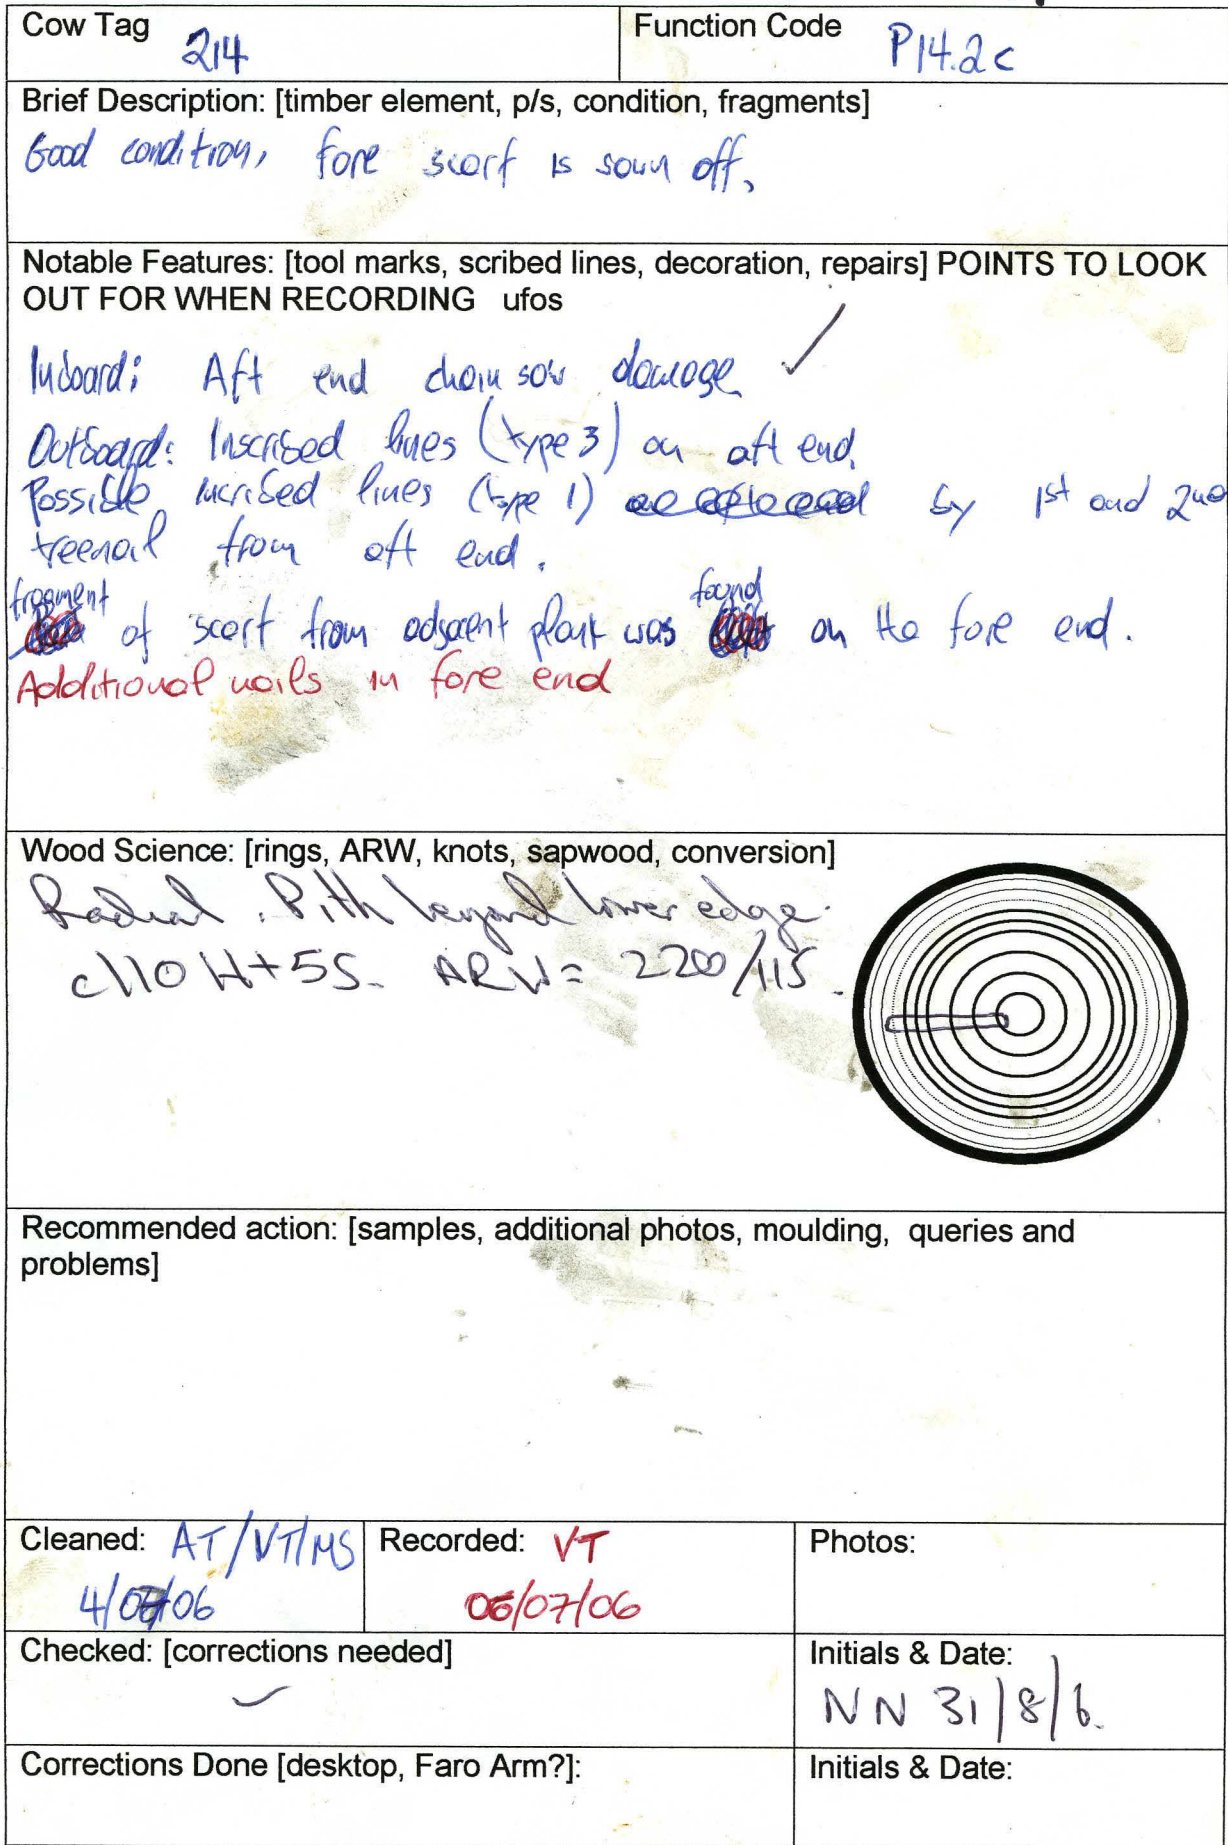 Cow Tag 214
Function Code P14.2c
Brief Description: [timber element, p/s, condition, fragments]
Good condition, fore scarf is sawn off.
Notable Features: [tool marks, scribed lines, decoration, repairs] POINTS TO LOOK
OUT FOR WHEN RECORDING ufos
Inboard: Aft end chain saw damage ✓
Outboard: Inscribed lines (type 3) on aft end.
Possible incribed lines (type 1) by 1st and 2nd
treenail from aft end.
fragment of scarf from adjacent plank was found on the fore end.
Additional nails in fore end
Wood Science: [rings, ARW, knots, sapwood, conversion]
Radial. Pith beyond lower edge.
c110 H+5S. ARW= 2200/115.
Recommended action: [samples, additional photos, moulding, queries and
problems]
Cleaned: AT/VT/MS
4/07/06
Recorded: VT
06/07/06
Photos:
Checked: [corrections needed]
✓
Initials & Date:
NN 31/8/6.
Corrections Done [desktop, Faro Arm?]:
Initials & Date: